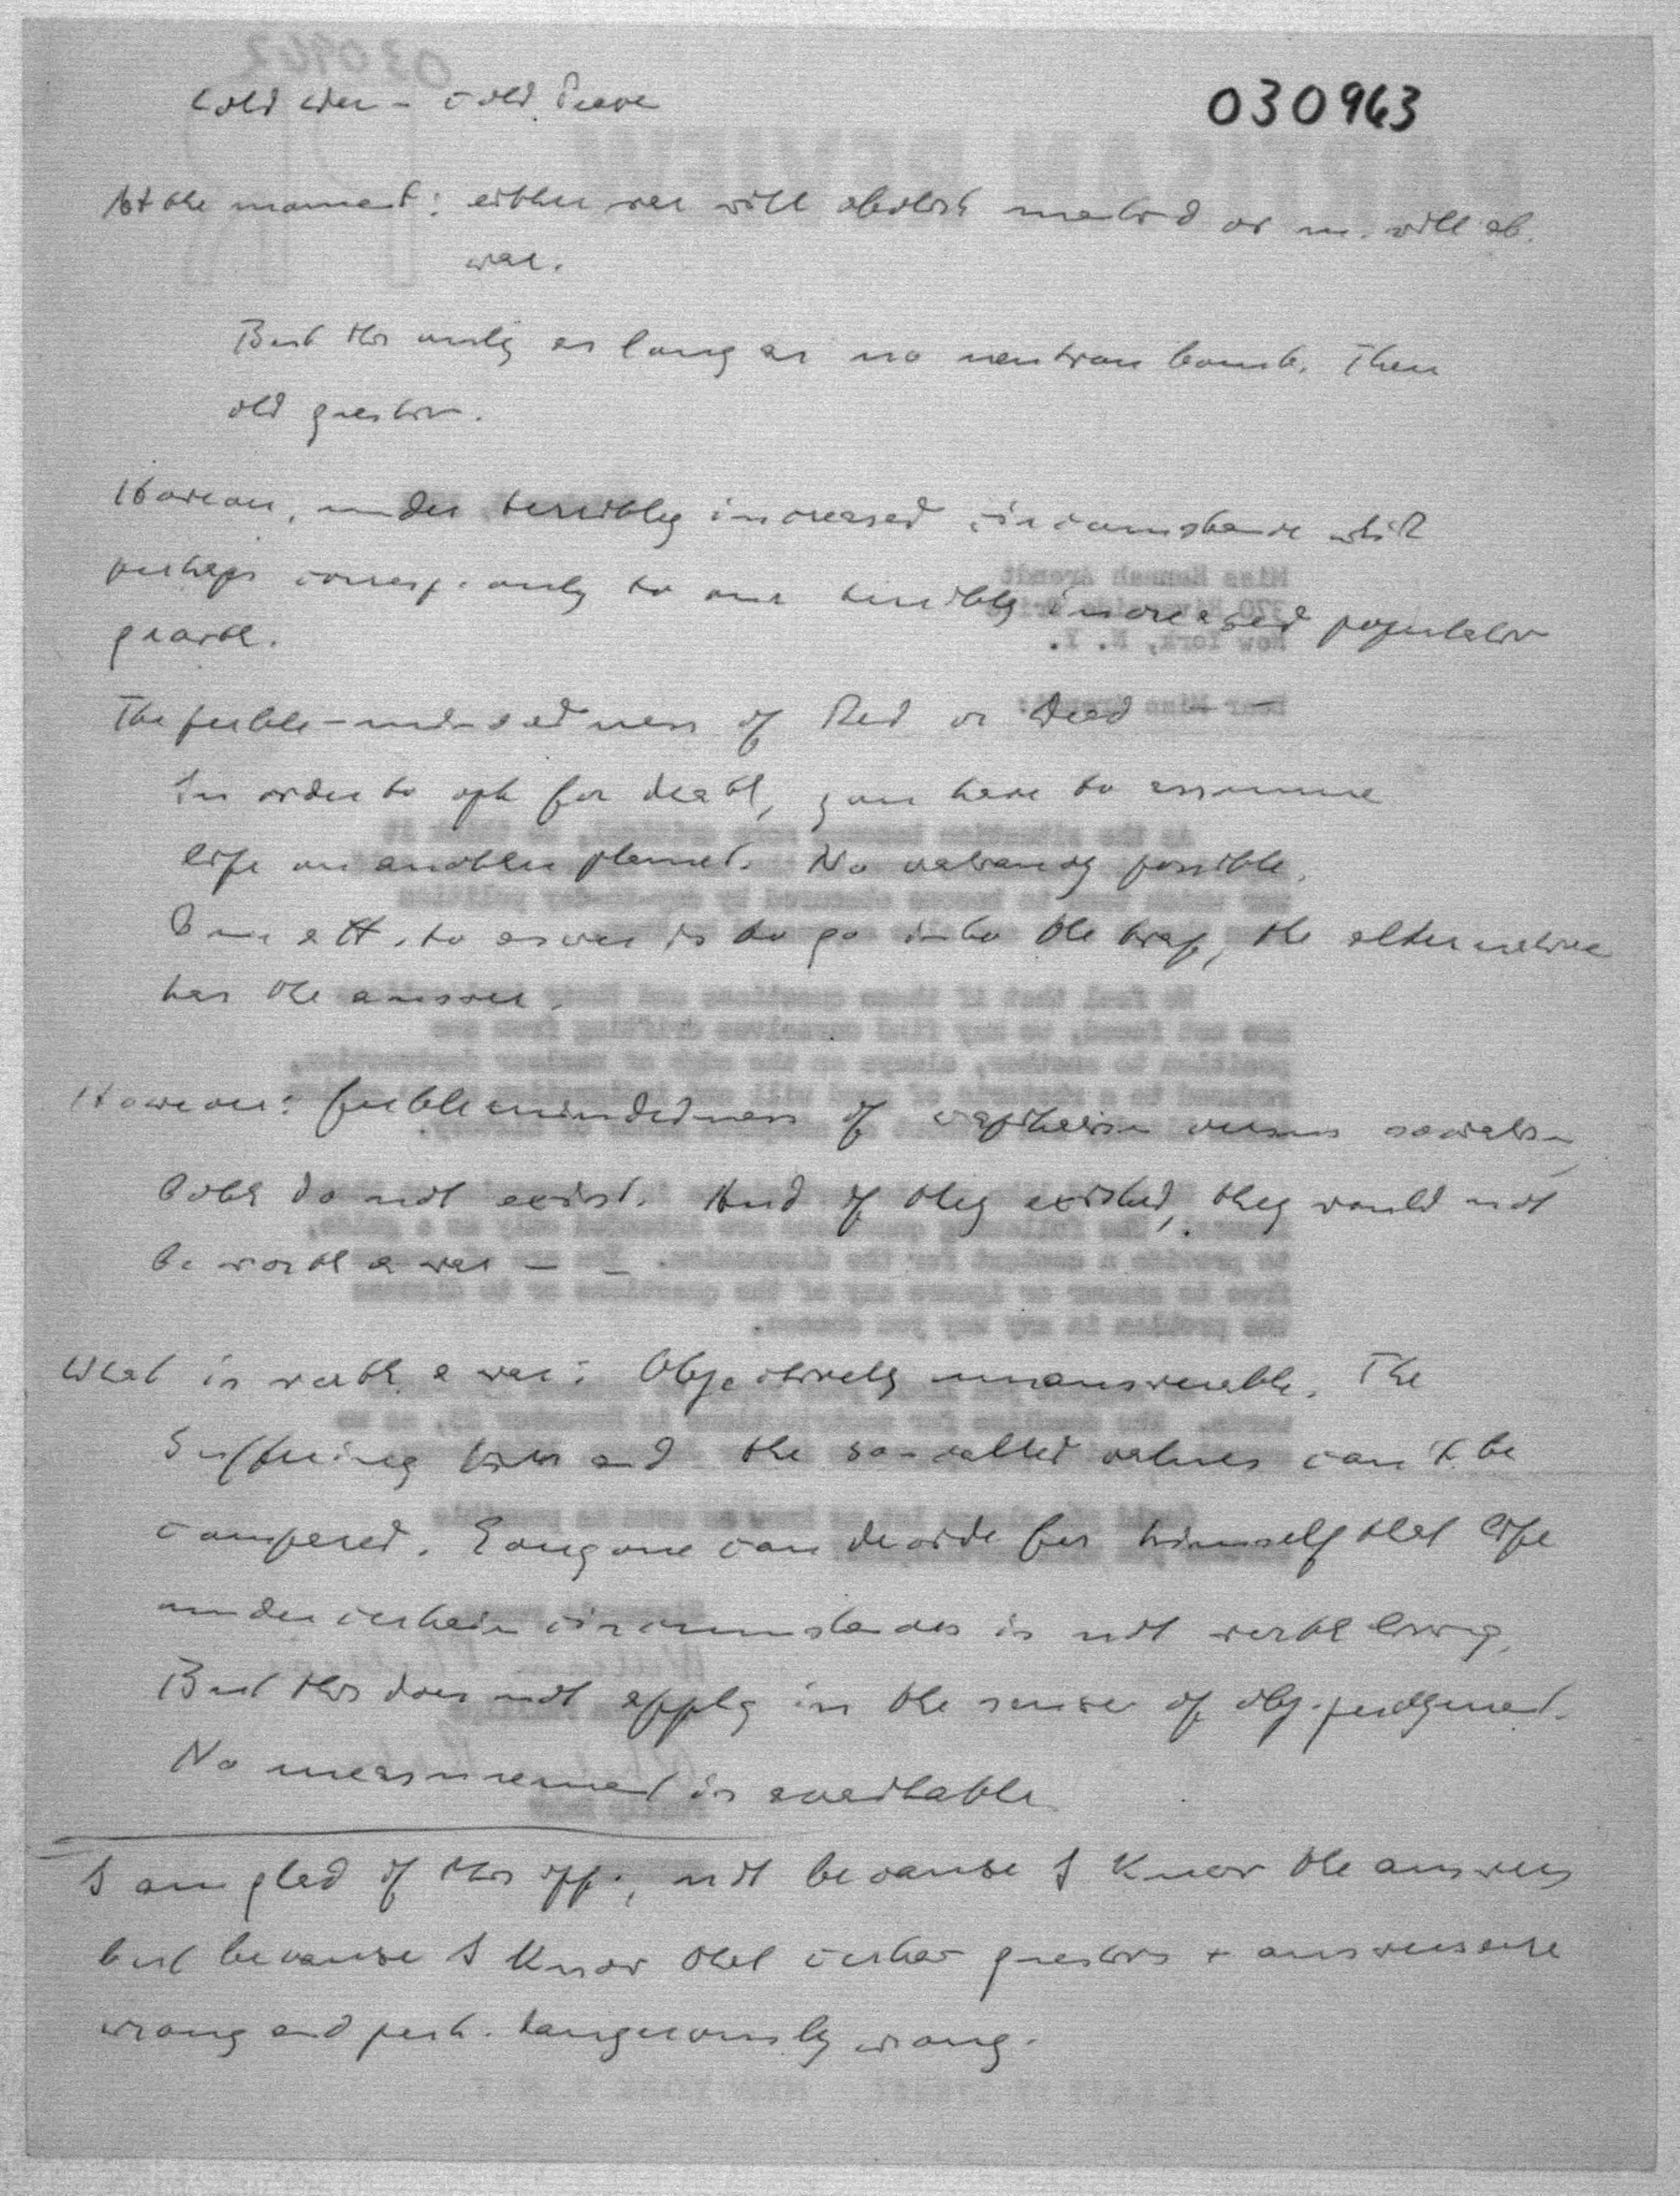 Cold War - Cold Peace
030963
At the moment: either war will abolish mankind or m. will ab.
war.
But this only as long as no neutron bomb. Then
old question.
However, under terribly increased circumstance which
perhaps corresp. only to our terribly increased population
growth.
The feeble-mindedness of Red or Dead — —
In order to opt for death, you have to assume
life on another planet. No wager possible.
to answer is to go into the trap, the alternative
has the answer.
However: feeblemindedness of capitalism versus socialism,
Both do not exist. And if they existed, they would not
be worth a war — —
What is worth a war: Objectively unanswerable. The
suffering and the so-called values can't be
compared. Everyone can decide for himself that life
under certain circumstances is not worth living.
But this does not apply in the sense of obj. judgment.
No measurement is available
I am glad of this opp., not because I know the answers
but because I know that certain questions + answers are
wrong and perh. dangerously wrong.
Miss Hannah Arendt
370 Riverside Drive
New York, N. Y.
Dear Miss Arendt: